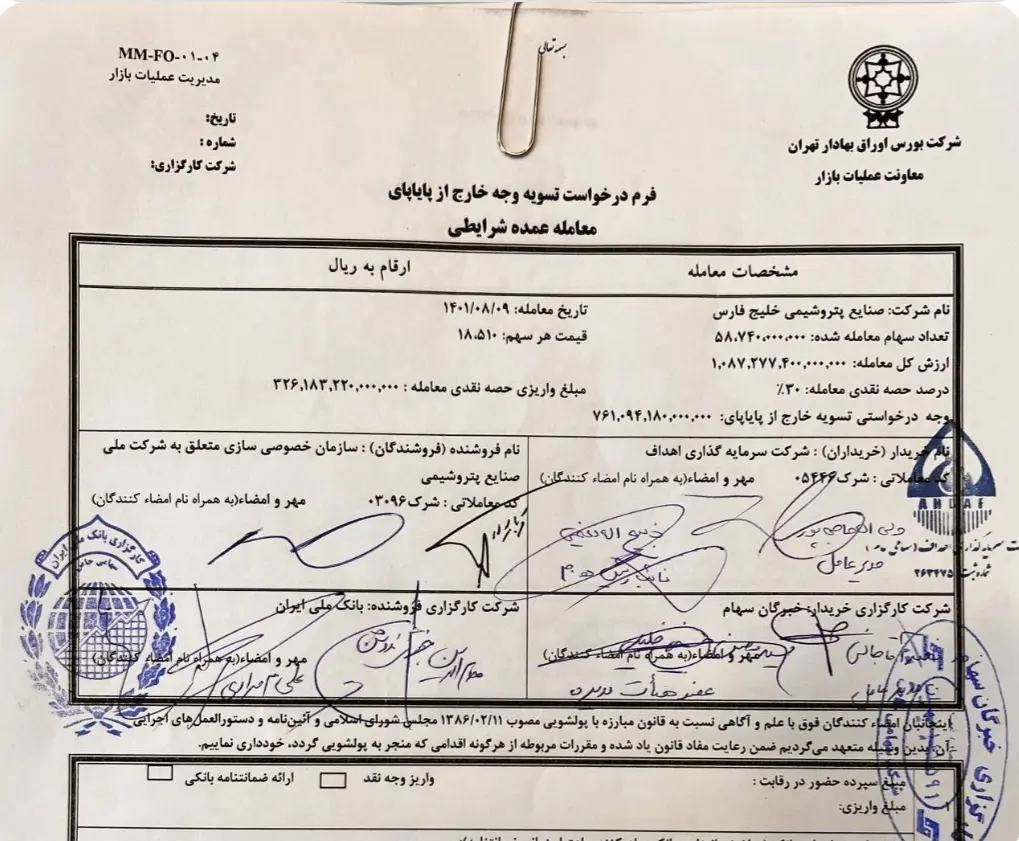 بسمه تعالی
MM-FO-۰۱-۰۴
مدیریت عملیات بازار
تاریخ:
شماره :
شرکت کارگزاری:
شرکت بورس اوراق بهادار تهران
معاونت عملیات بازار
فرم درخواست تسویه وجه خارج از پایاپای
معامله عمده شرایطی
مشخصات معامله
ارقام به ریال
نام شرکت: صنایع پتروشیمی خلیج فارس
تاریخ معامله: ۱۴۰۱/۰۸/۰۹
تعداد سهام معامله شده: ۵۸،۷۴۰،۰۰۰،۰۰۰
قیمت هر سهم: ۱۸،۵۱۰
ارزش کل معامله: ۱،۰۸۷،۲۷۷،۴۰۰،۰۰۰،۰۰۰
درصد حصه نقدی معامله: ۳۰٪
مبلغ واریزی حصه نقدی معامله : ۳۲۶،۱۸۳،۲۲۰،۰۰۰،۰۰۰
وجه درخواستی تسویه خارج از پایاپای: ۷۶۱،۰۹۴،۱۸۰،۰۰۰،۰۰۰
نام خریدار (خریداران) : شرکت سرمایه گذاری اهداف
کد معاملاتی : شرک۰۵۴۴۶
مهر و امضاء(به همراه نام امضاء کنندگان)
AHDAF
شماره ثبت ۲۶۳۴۷۵
مدیرعامل
نایب رئیس هـ م
نام فروشنده (فروشندگان) : سازمان خصوصی سازی متعلق به شرکت ملی
صنایع پتروشیمی
کد معاملاتی : شرک۰۳۰۹۶
مهر و امضاء(به همراه نام امضاء کنندگان)
شرکت کارگزاری خریدار: خبرگان سهام
مهر و امضاء(به همراه نام امضاء کنندگان)
مدیر عامل
عضو هیأت مدیره
کارگزاری خبرگان سهام
شرکت کارگزاری فروشنده: بانک ملی ایران
مهر و امضاء(به همراه نام امضاء کنندگان)
کارگزاری بانک ملی ایران
سهامی خاص
اینجانبان امضاء کنندگان فوق با علم و آگاهی نسبت به قانون مبارزه با پولشویی مصوب ۱۳۸۶/۰۲/۱۱ مجلس شورای اسلامی و آئین‌نامه و دستورالعمل‌های اجرایی
آن بدین وسیله متعهد می‌گردیم ضمن رعایت مفاد قانون یاد شده و مقررات مربوطه از هرگونه اقدامی که منجر به پولشویی گردد، خودداری نماییم.
مبلغ سپرده حضور در رقابت :
واریز وجه نقد
ارائه ضمانتنامه بانکی
مبلغ واریزی: